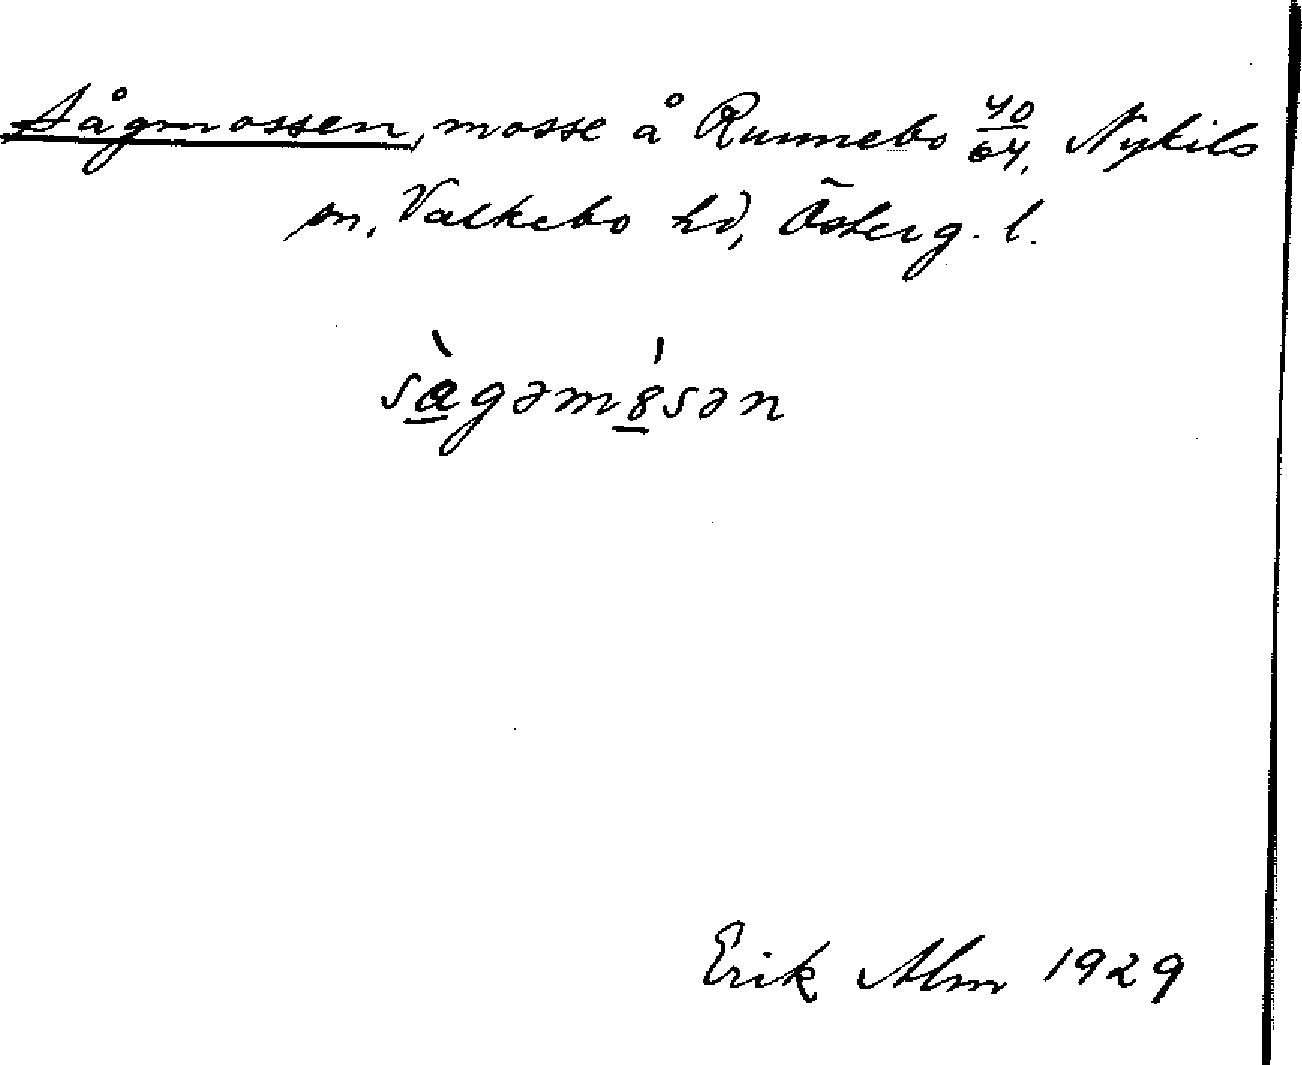 Sågmossen, mosse å Runnebo 40/64, Nykils
sn, Valkebo hd, Österg. l.
sàgəmósən
Erik Alm 1929